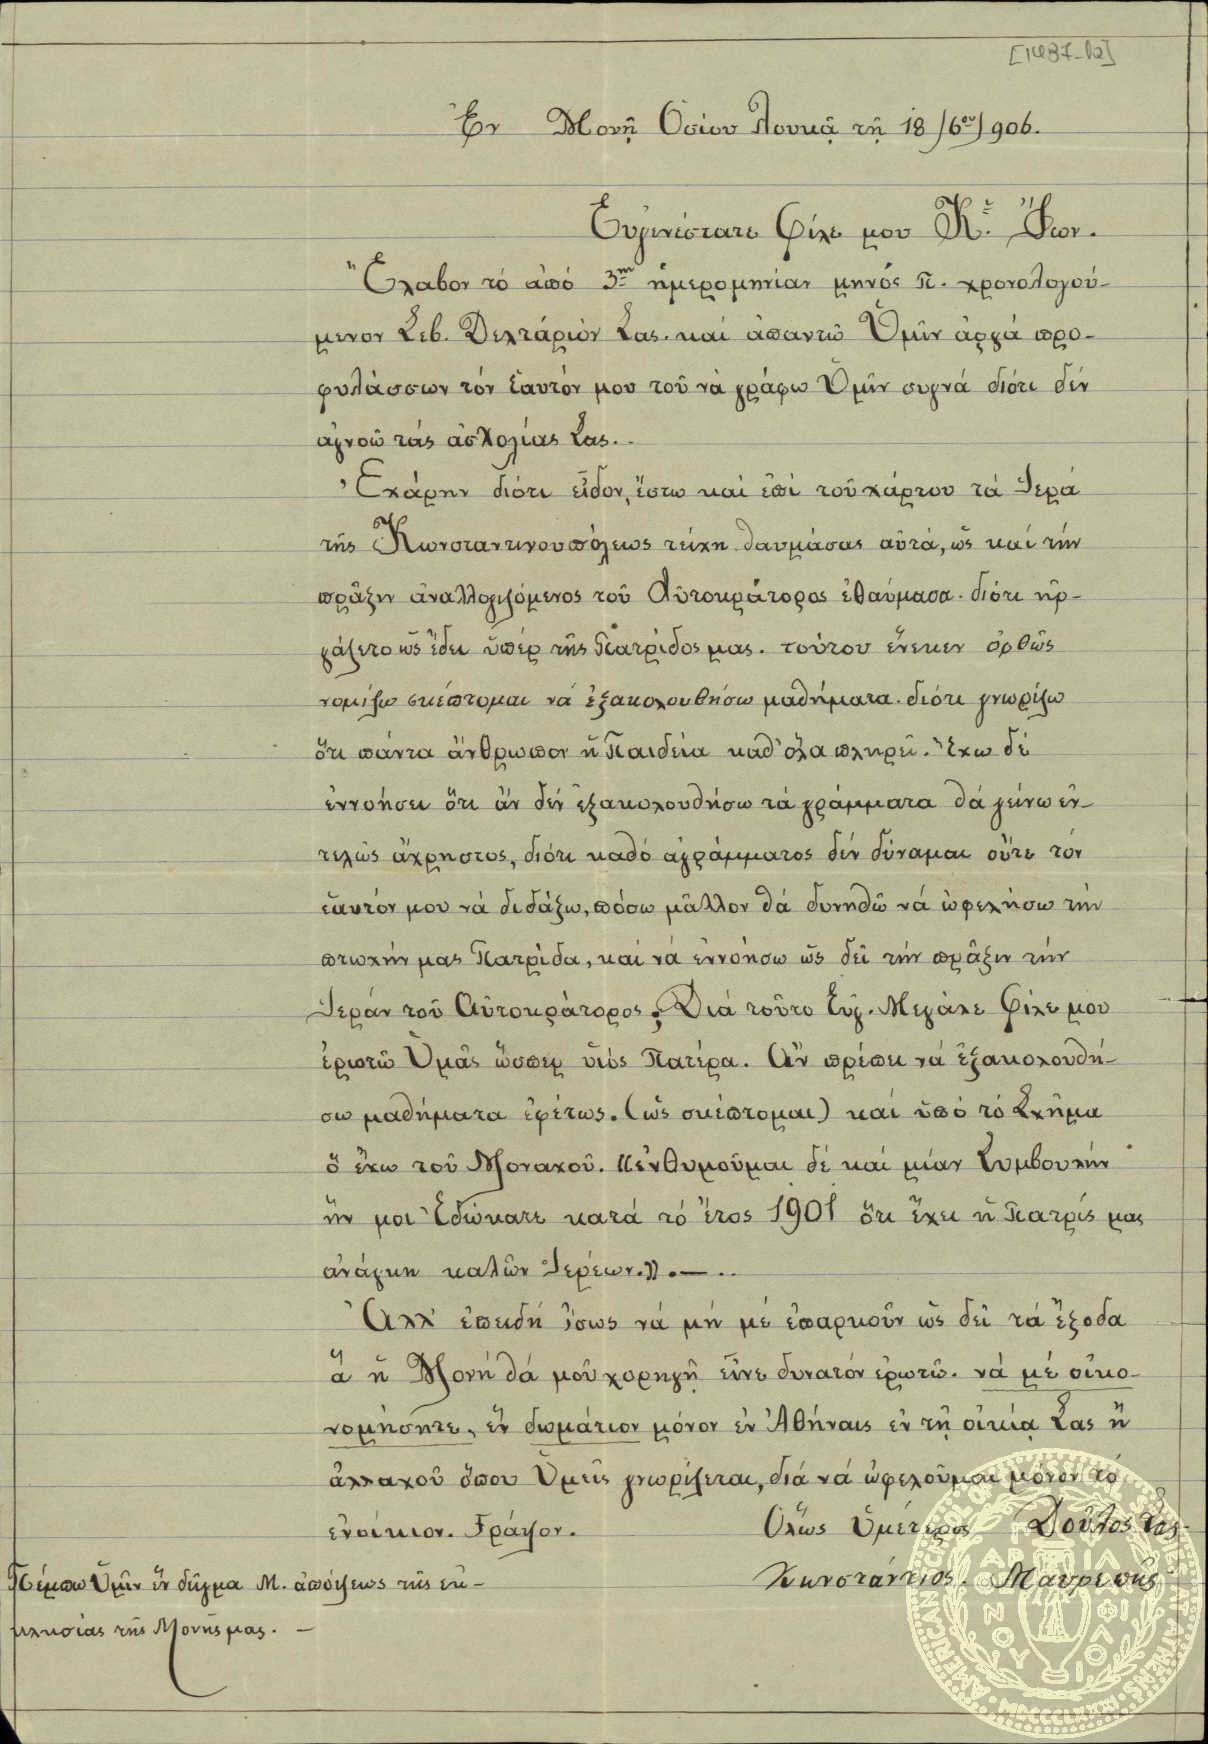 [1487-12]
Ἐν Μονῇ Ὁσίου Λουκᾷ τῇ 18/6ου/906.
Εὐγινέστατε Φίλε μου Κ. Ἴων.
Ἔλαβον τό ἀπό 3ης ἡμερομηνίαν μηνός π. χρονολογού-
μενον Σεβ. Δελτάριόν Σας. καί ἀπαντῶ Ὑμῖν ἀργά προ-
φυλάσσων τόν ἑαυτόν μου τοῦ νὰ γράφω Ὑμῖν συχνά διότι δέν
ἀγνοῶ τάς ἀσχολίας Σας..
Ἐχάρην διότι εἶδον, ἔστω καί ἐπί τοῦ χάρτου τά Ἱερά
τῆς Κωνσταντινουπόλεως τείχη θαυμάσας αὐτά, ὡς καί τήν
πρᾶξιν ἀναλλογιζόμενος τοῦ Αὐτοκράτορος ἐθαύμασα. διότι ἠρ-
γάζετο ὡς ἔδει ὑπέρ τῆς Πατρίδος μας. τούτου ἕνεκεν ὀρθῶς
νομίζω σκέπτομαι νά ἐξακολουθήσω μαθήματα. διότι γνωρίζω
ὅτι πάντα ἄνθρωπον ἡ Παιδεία καθ᾽ ὅλα πληρεῖ. Ἔχω δέ
ἐννοήσει ὅτι ἄν δέν ἐξακολουθήσω τά γράμματα θά γείνω ἐν-
τελῶς ἄχρηστος, διότι καθό ἀγράμματος δέν δύναμαι οὔτε τόν
ἑαυτόν μου νά διδάξω, πόσω μᾶλλον θά δυνηθῶ νά ὠφελήσω τήν
πτωχήν μας Πατρίδα, καί νά ἐννοήσω ὡς δεῖ τήν πρᾶξιν τήν
Ἱεράν τοῦ Αὐτοκράτορος; Διά τοῦτο Εὐγ. Μεγάλε Φίλε μου
ἐρωτῶ Ὑμᾶς ὥσπερ υἱός Πατέρα. Ἄν πρέπει νά ἐξακολουθή-
σω μαθήματα ἐφέτως. (ὡς σκέπτομαι) καί ὑπό τό Σχῆμα
ὅ ἔχω τοῦ Μοναχοῦ. «ἐνθυμοῦμαι δέ καί μίαν Συμβουλήν
ἥν μοι Ἐδώκατε κατά τό ἔτος 1901 ὅτι ἔχει ἡ Πατρίς μας
ἀνάγκη καλῶν Ἱερέων.». — ..
Ἀλλ᾽ ἐπειδή ἴσως νά μή μέ ἐπαρκοῦν ὡς δεῖ τά ἔξοδα
ἅ ἡ Μονή θά μοῦ χορηγῇ εἶνε δυνατόν ἐρωτῶ. νά μέ οἰκο-
νομήσητε, ἕν δωμάτιον μόνον ἐν Ἀθήναις ἐν τῇ οἰκίᾳ Σας ἤ
ἀλλαχοῦ ὅπου Ὑμεῖς γνωρίζεται, διά νά ὠφελοῦμαι μόνον τό
ἐνοίκιον. Γράψον. Ὅλως Ὑμέτερος Δοῦλος Σας.
Κωνστάντιος. Μαυρεπῆς
Πέμπω Ὑμῖν ἕν δεῖγμα Μ. ἀπόψεως τῆς ἐκ-
κλησίας τῆς Μονῆς μας. —
AMERICAN SCHOOL OF CLASSICAL STUDIES AT ATHENS
ΠΑΡΘΕΝΟΥ ΦΙΛΑΣ ΦΙΛΟΙ
MDCCCLXXXI